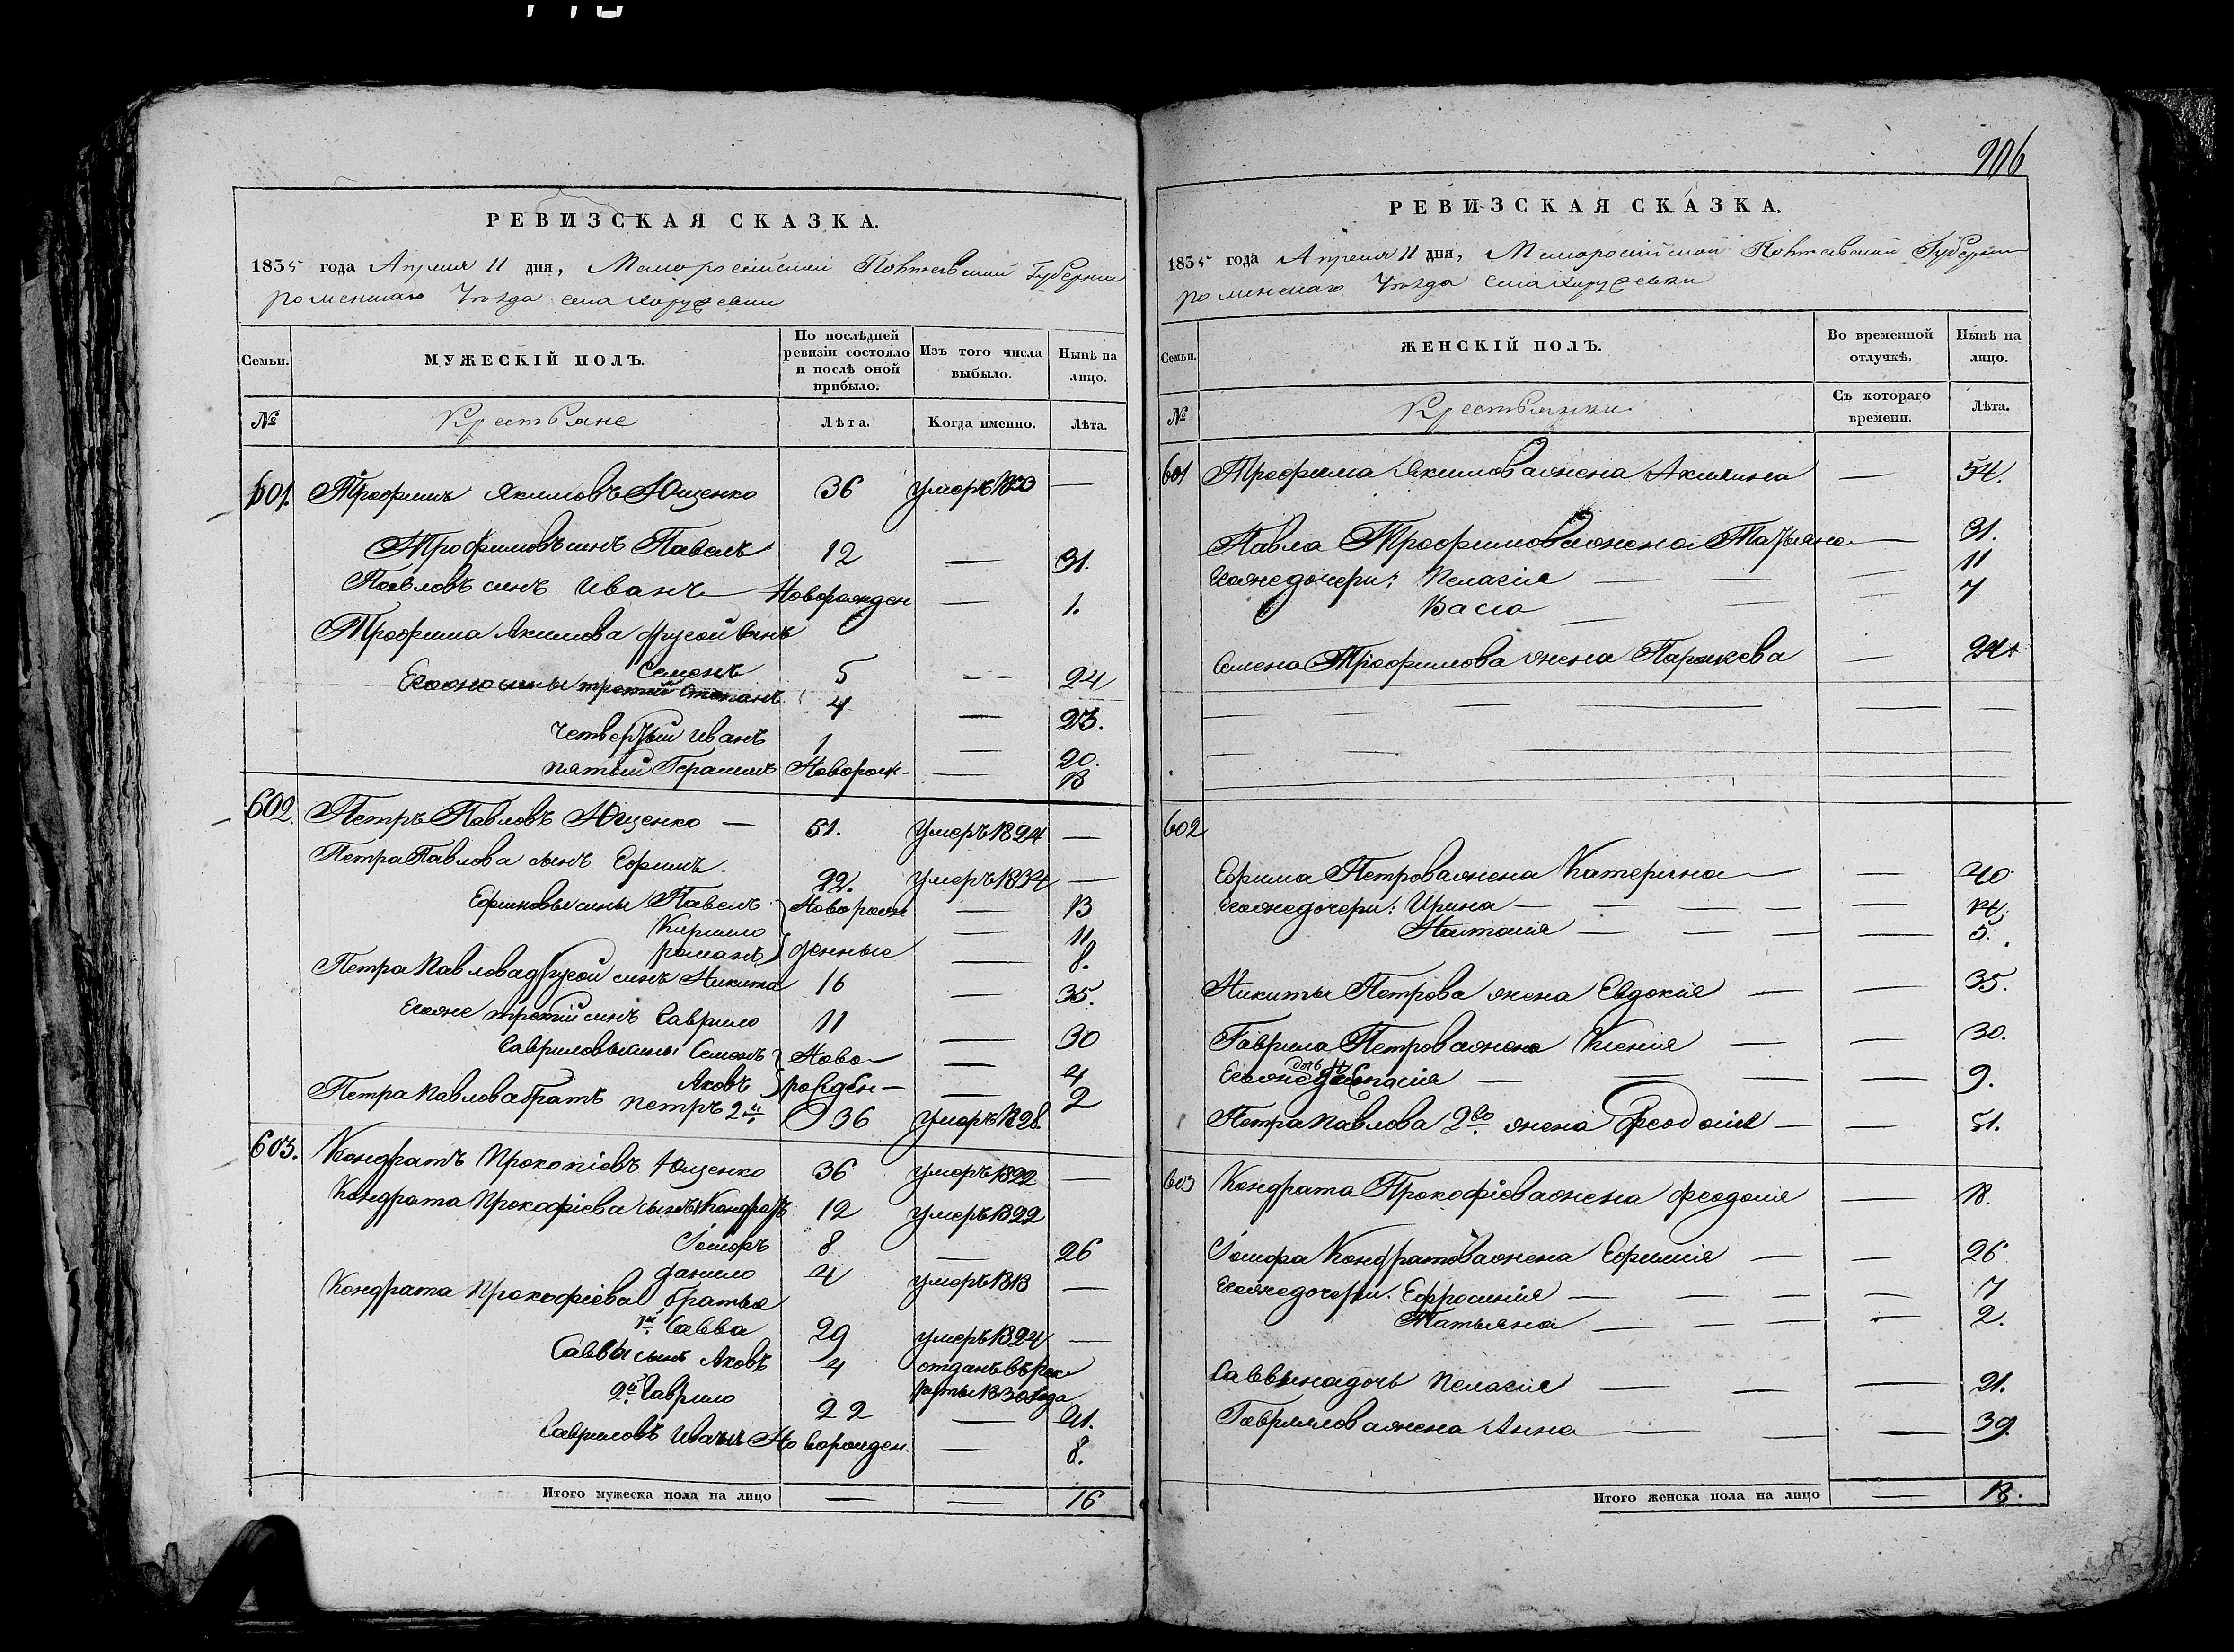 906
РЕВИЗСКАЯ СКАЗКА.
1835 года Апреля 11 дня, Малоросійской Полтавской Губерніи
роменскаго Уѣзда села Хоружевки
Семьи.
МУЖЕСКІЙ ПОЛЪ.
По послѣдней ревизіи состояло и послѣ оной прибыло.
Изъ того числа выбыло.
Нынѣ на лицо.
№
Крестьяне
Лѣта.
Когда именно.
Лѣта.
601. Трофимъ Якимовъ Ющенко 36 умеръ —
Трофимовъ синъ Павелъ 12 — 31.
Павловъ синъ Иванъ Новорожден — 1.
Трофима Якимова другой сынъ
Семенъ 5 — 24
Егоже сыны третій Степанъ 4 — 23.
четвертый Иванъ 1 — 20.
пятый Герасимъ Новорож- — 13
602. Петръ Павловъ Ющенко — 51. умеръ 1824 —
Петра Павлова сынъ Ефимъ 22. умеръ 1834 —
Ефимовы сины Павелъ Новорож — 13
Кирило — 11
романъ денные — 8.
Петра Павлова другой синъ Никита 16 — 35.
Егоже третій синъ Гаврило 11 — 30
Гавриловы сины Семенъ Ново — 4
Яковъ рожден — 2
Петра Павлова братъ петръ 2й 36 умеръ 1828.
603. Кондратъ Прокопіевъ Ющенко 36 умеръ 1822 —
Кондрата Прокофіева сынъ Кондратъ 12 умеръ 1822
Іосифъ 8 — 26
данило 4 умеръ 1818 —
Кондрата Прокофіева братья
1й Савва 29 умеръ 1824 —
Саввы сынъ Яковъ 4 отданъ въ рек
руты 1830 года
2й Гаврило 22 — 41.
Гавриловъ Иванъ Новорожден. — 8.
Итого мужеска пола на лицо — — 16
РЕВИЗСКАЯ СКАЗКА.
1835 года Апреля 11 дня, Малоросійской Полтавской Губерніи
роменскаго Уѣзда села Хоружевки
Семьи.
ЖЕНСКІЙ ПОЛЪ.
Во временной отлучкѣ.
Нынѣ на лицо.
№
Крестьянки
Съ котораго времени.
Лѣта.
601 Трофима Якимова жена Акилина — 54.
Павла Трофимова жена Татьяна — 31.
Егоже дочери: Пелагія — — 11
Васса — — 7
Семена Трофимова жена Параскева — 24
602
Ефима Петрова жена Катерина — — 40
Егоже дочери: Ирина — — 14.
Наталія — — 5.
Никиты Петрова жена Евдокія — — 35.
Гаврила Петрова жена Ксенія — — 30.
Егоже дочь — — 9.
Петра Павлова 2го жена Феодосія — — 51.
603 Кондрата Прокофіева жена феодосія —
Іосифа Кондратова жена Ефимія — — 26
Егоже дочери: Ефросинія — — 7
Татьяна — — 2.
Саввина дочь Пелагія — — 21.
Гаврилова жена Анна — — 39.
Итого женска пола на лицо —